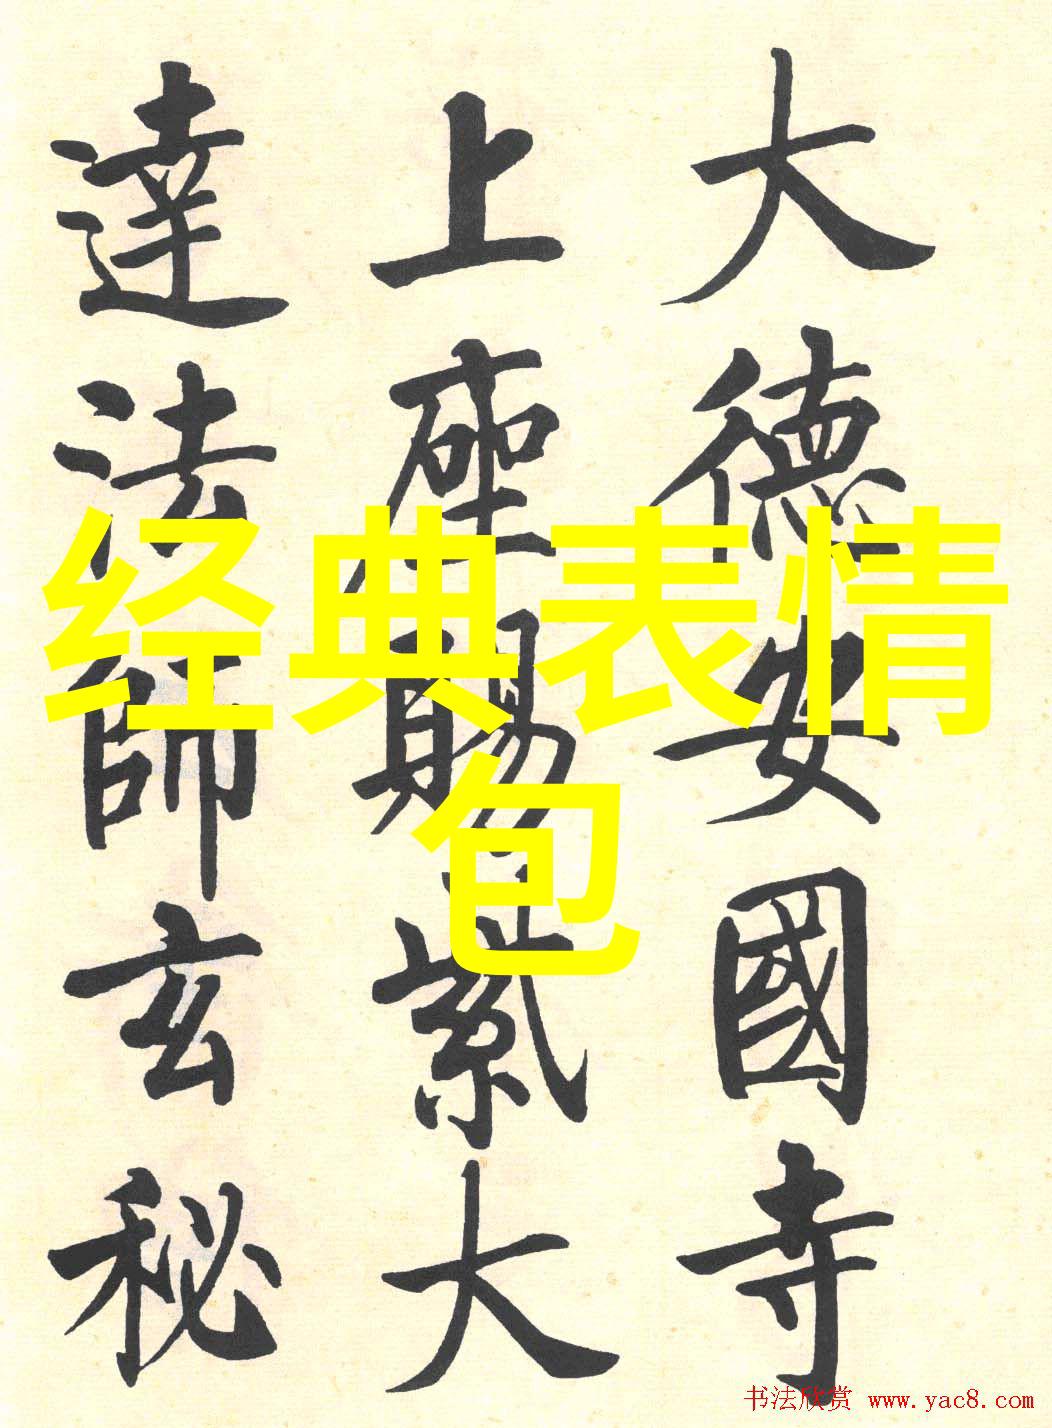 大德安國寺
上座賜紫大
達法師玄秘
经典表情
包
书法欣赏 www.yac8.com